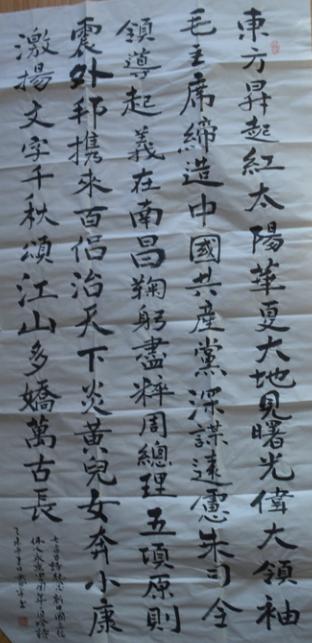 東方昇起紅太陽華夏大地見曙光偉大領袖
毛主席締造中國共產黨深謀遠慮朱司令
領導起義在南昌鞠躬盡粹周總理五項原則
震外邦携來百侣治天下炎黃兒女奔小康
激揚文字千秋頌江山多嬌萬古長